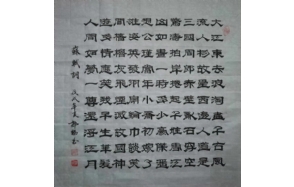 大江東去浪淘盡千古風
流人物故壘西邊人道是
三國周郎赤壁亂石穿空
驚濤拍岸捲起千堆雪江
山如畫一時多少豪傑遙
想公瑾當年小喬初嫁了
雄姿英發羽扇綸巾談笑
間檣櫓灰飛煙滅故國神
遊多情應笑我早生華髮
人間如夢一尊還酹江月
蘇軾詞